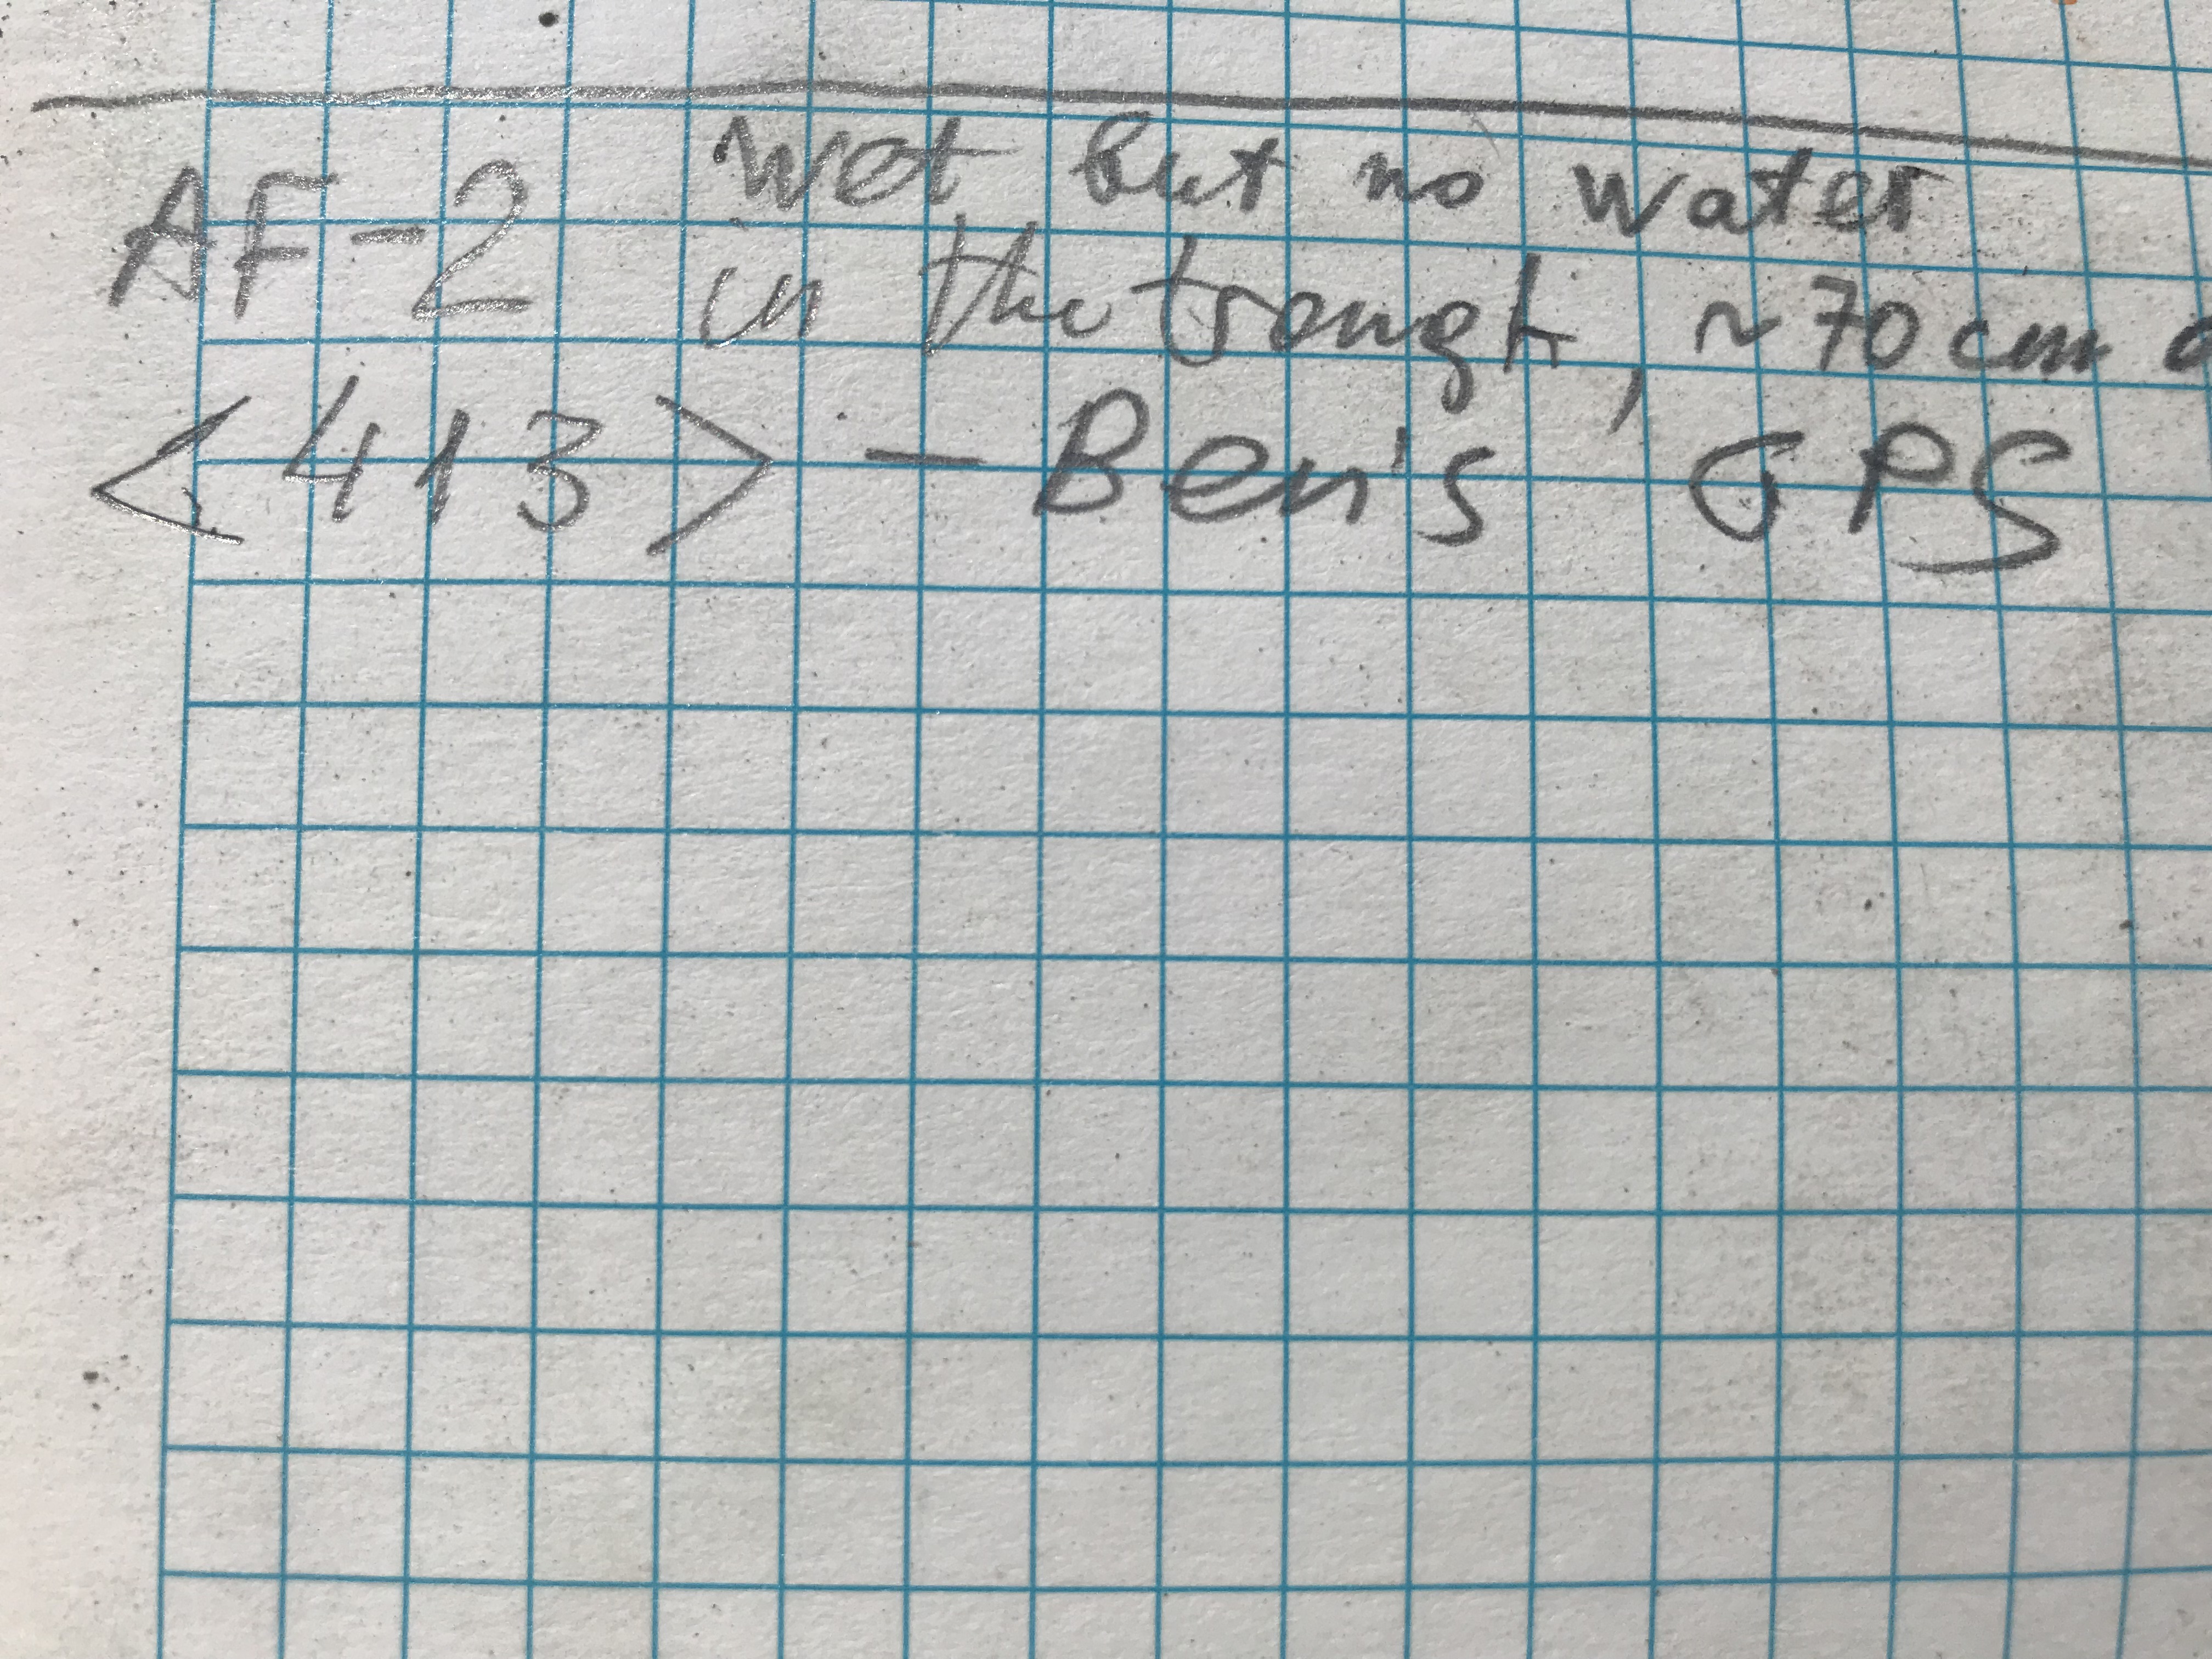 AF-2 wet but no water
in the trough, ~70 cm
<413> - Ben's GPS